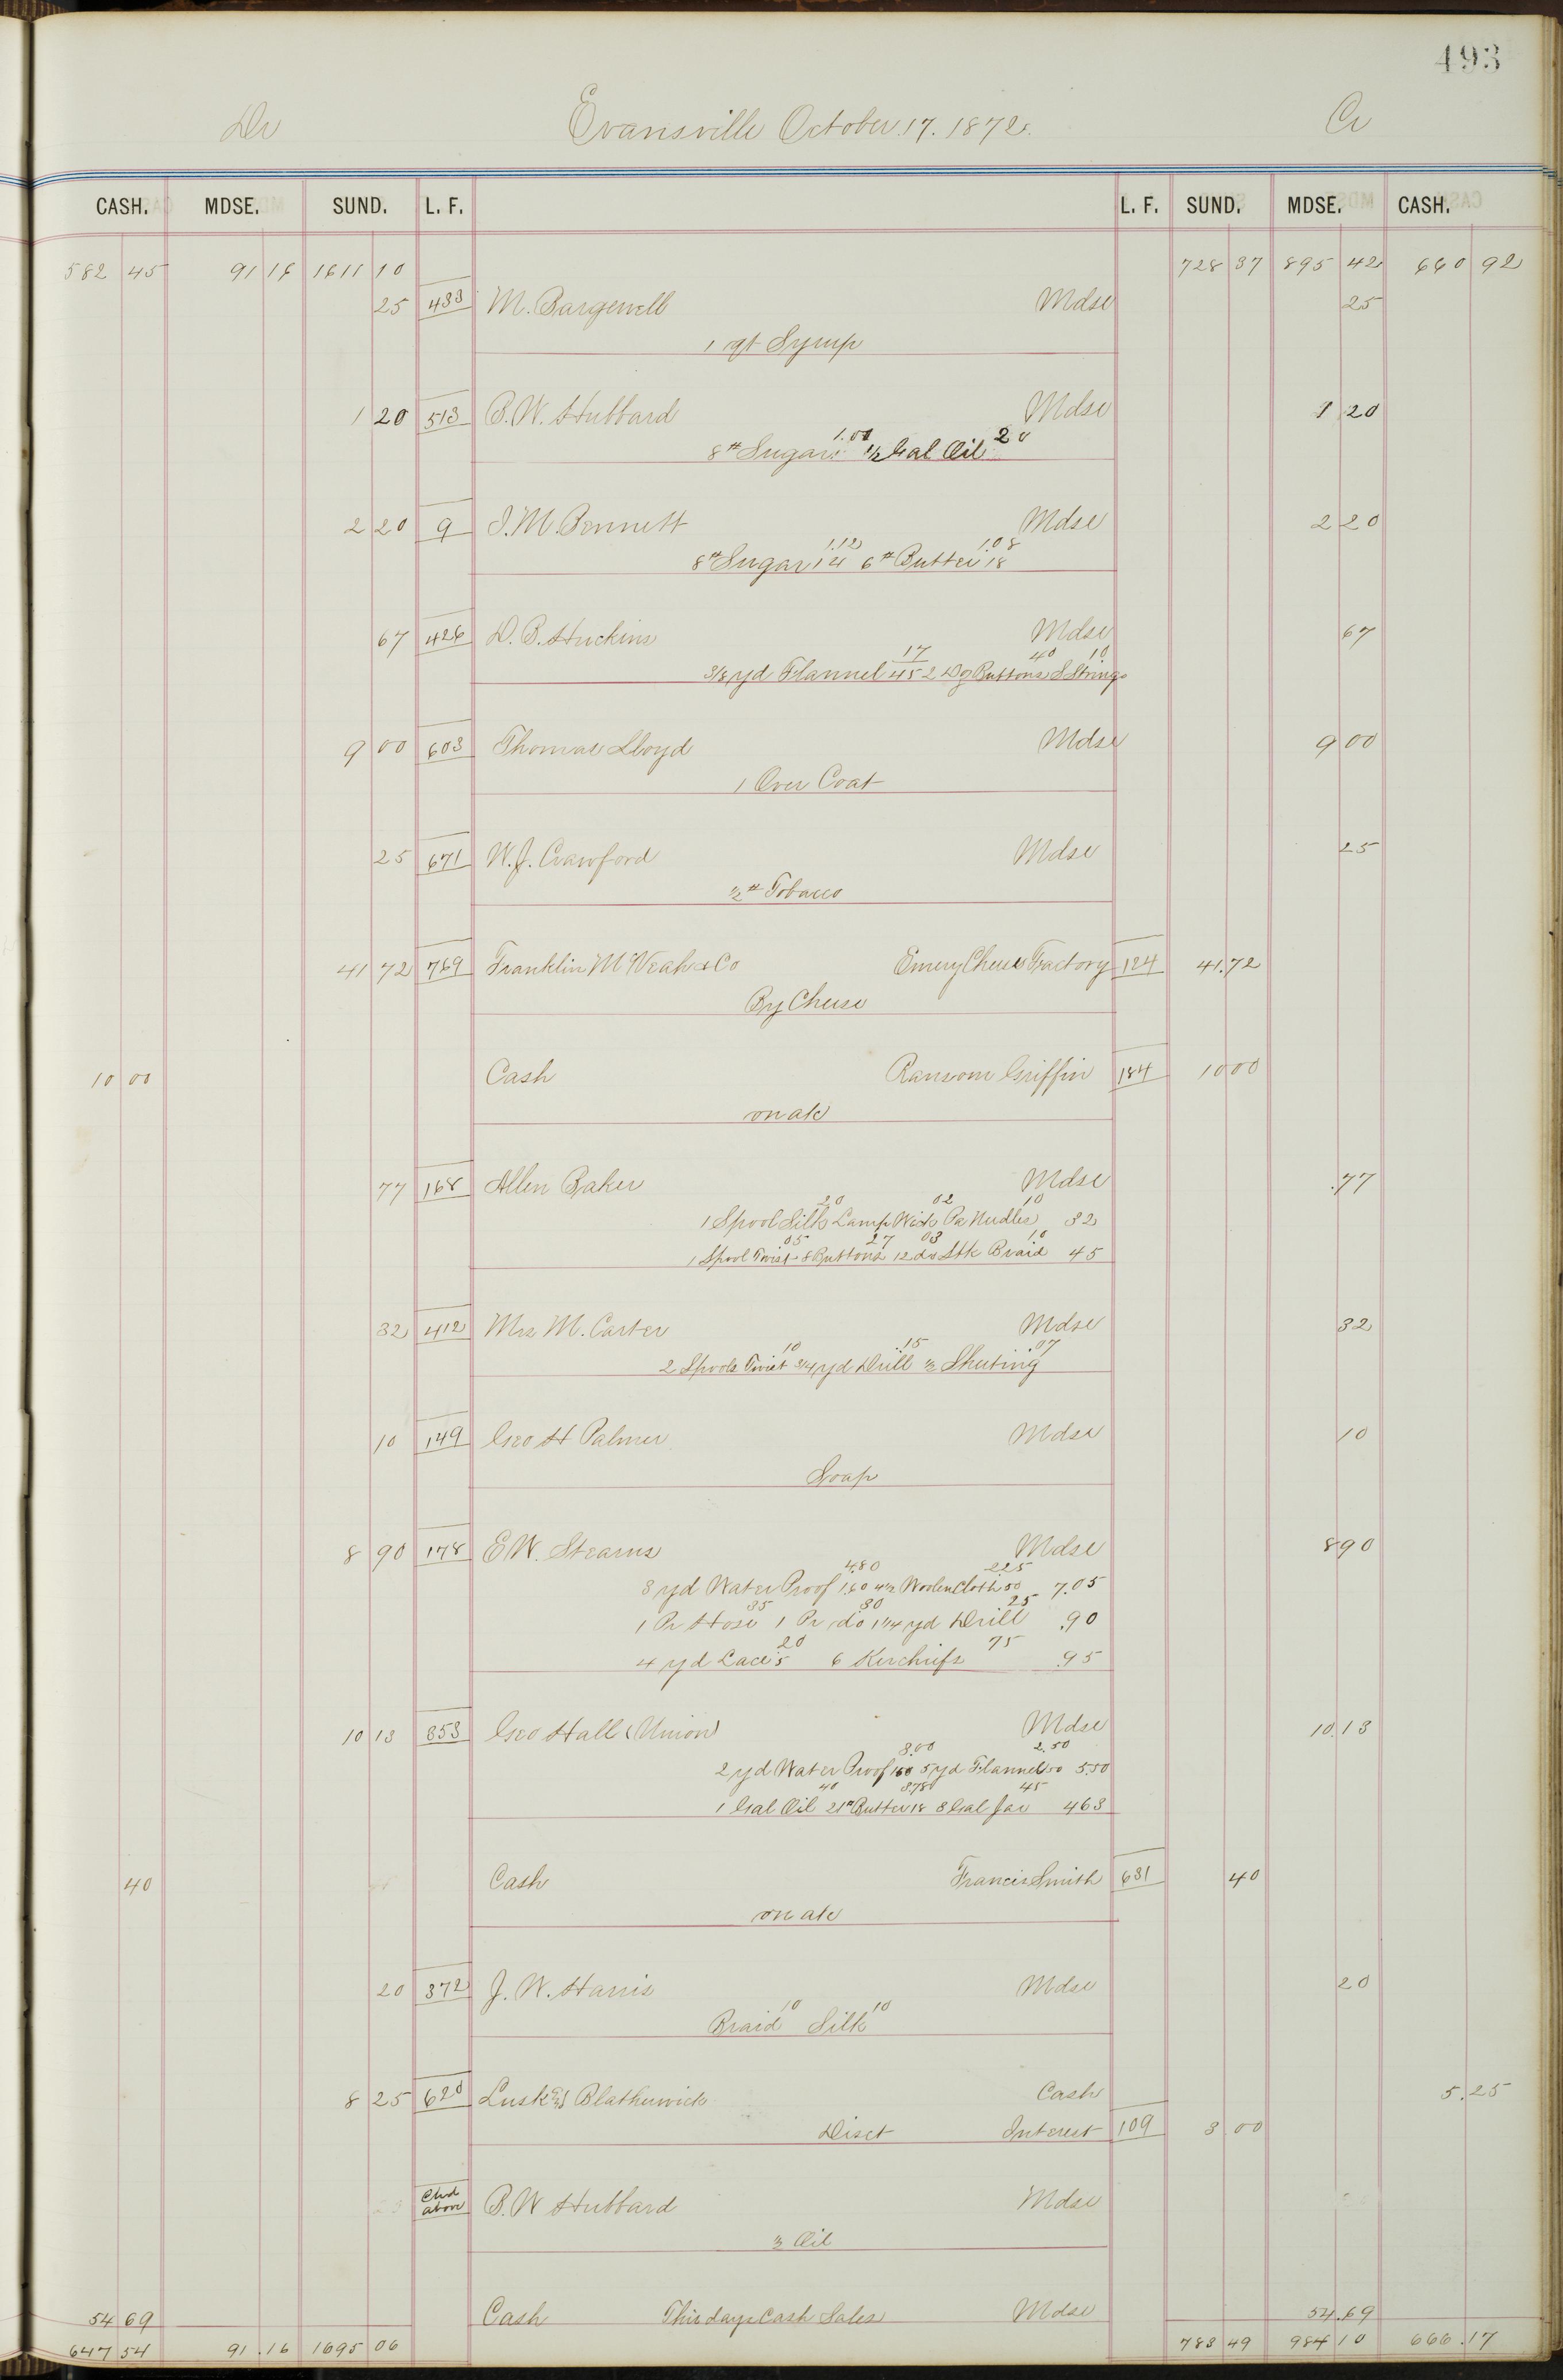 493
Dr Evansville October 17. 1872. Cr
CASH. MDSE. SUND. L. F. L. F. SUND. MDSE. CASH.
582 45 91 16 1611 10 728 37 895 42 660 92
25 433 M. Bargewell Mdse 25
1 qt Syrup
1 20 513 B. W. Hubbard Mdse 1 20
1.00 20
8# Sugar 1/2 Gal Oil
2 20 9 I. M. Bennett Mdse 2 20
1.12 1.08
8# Sugar 14 6# Butter 18
67 426 D. B. Huckins Mdse 67
17 40 10
3/8 yd Flannel 45 2 Dz Buttons S Strings
9 00 603 Thomas Lloyd Mdse 9 00
1 Over Coat
25 671 W. J. Crawford Mdse 25
1/2# Tobacco
41 72 769 Franklin McVeah & Co Emery Cheese Factory 124 41.72
By Cheese
10 00 Cash Ransom Griffin 184 10 00
on a/c
77 168 Allen Baker Mdse .77
20 02 10
1 Spool Silk Lamp Wick Pa Needles 32
05 27 03 10
1 Spool Twist 8 Buttons 12 do Stk Braid 45
32 412 Mrs M. Carter Mdse 32
10 .15 .07
2 Spools Twist 3/4 yd Drill 1/2 Sheeting
10 149 Geo H Palmer Mdse 10
Soap
8 90 178 E W. Stearns Mdse 8 90
4.80 2 25
3 yd Water Proof 1.60 4 1/2 Woolen Cloth 50 7.05
35 30 25
1 Pr Hose 1 Pr do 1 1/4 yd Drill .90
20 75
4 yd Lace 5 6 Kerchiefs .95
10 13 353 Geo Hall (Union) Mdse 10.13
3.00 2.50
2 yd Water Proof 150 5 yd Flannel 50 5.50
40 3.78 45
1 Gal Oil 21# Butter 18 3 Gal Jar 4 63
40 Cash Francis Smith 631 40
on a/c
20 372 J. W. Harris Mdse 20
10 10
Braid Silk
8 25 620 Lusk & Blatherwick Cash 5.25
Disct Interest 109 3 00
Chd above B. W Hubbard Mdse
1/2 Oil
54 69 Cash This days Cash Sales Mdse 54.69
647 54 91.16 1695 06 783 49 984 10 666.17